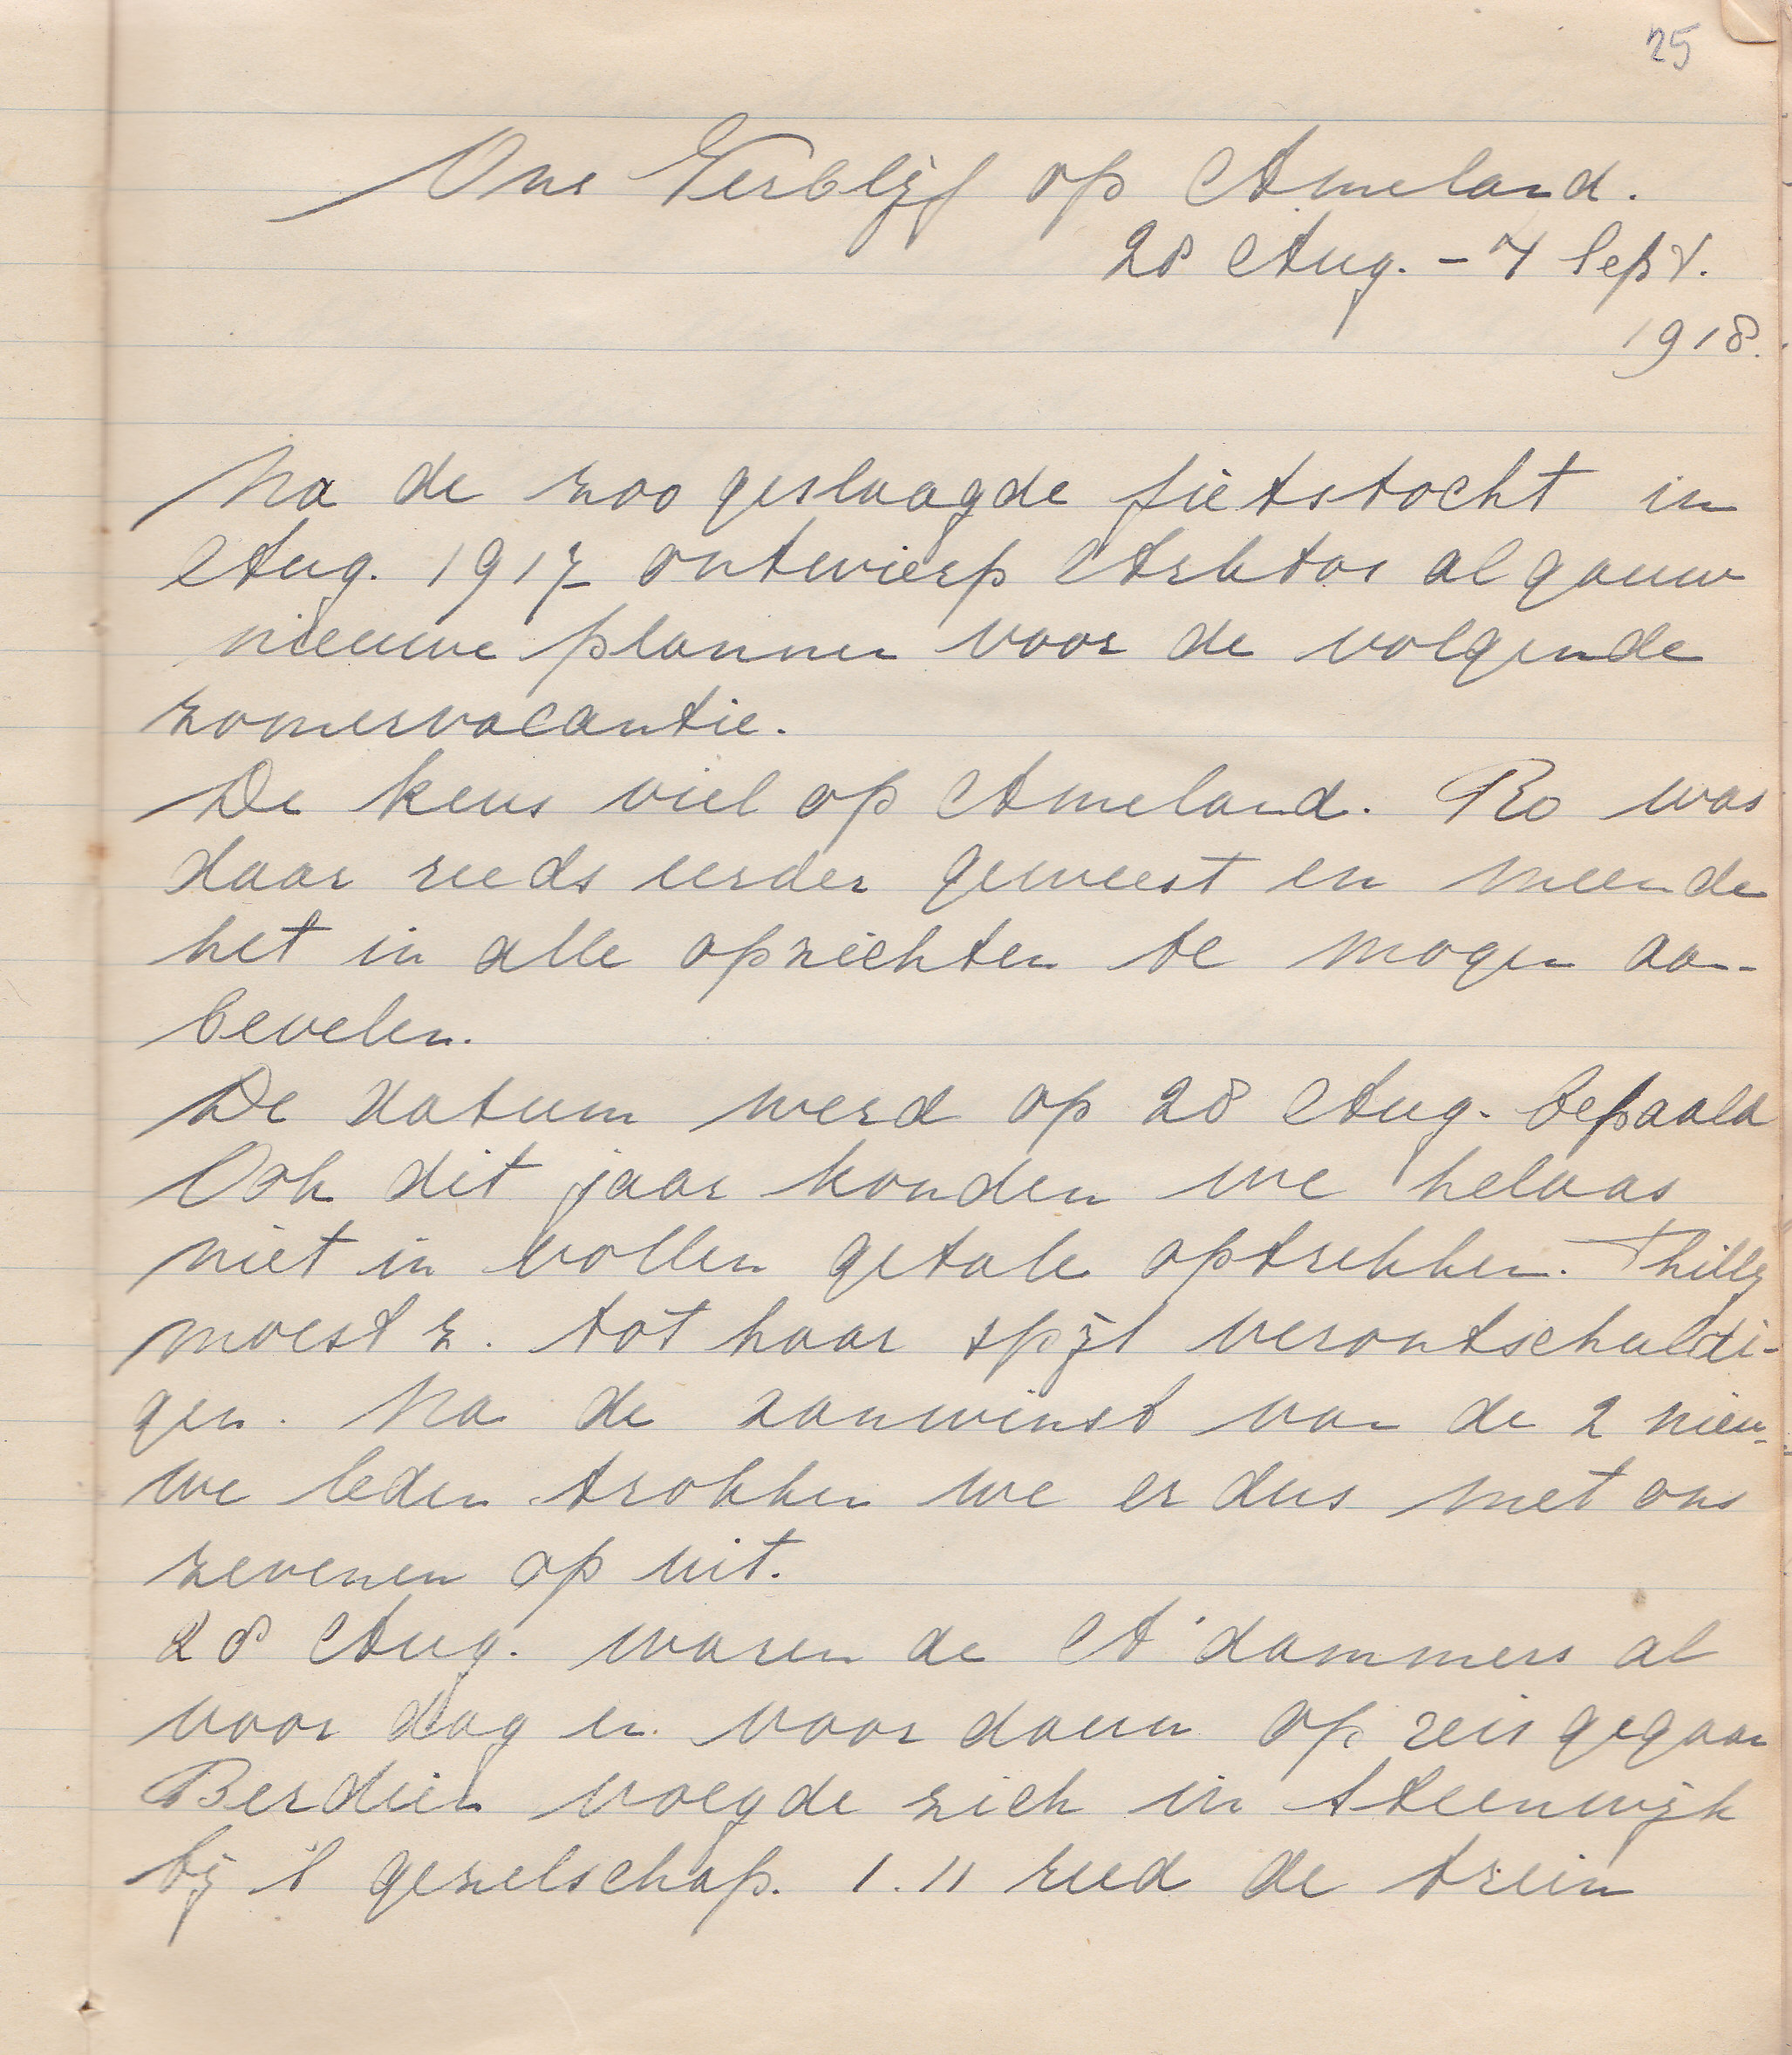 25
Ons Verblijf op Ameland.
28 Aug. - 4 Sept.
1918.
Na de zoo geslaagde fietstocht in
Aug. 1917 ontwierp Arktos al gauw
nieuwe plannen voor de volgende
zomervacantie.
De keus viel op Ameland. Ro was
daar reeds eerder geweest en meende
het in alle opzichten te mogen aan-
bevelen.
De datum werd op 28 Aug. bepaald
Ook dit jaar konden we helaas
niet in vollen getale optrekken. Thilly
moest z. tot haar spijt verontschuldi-
gen. Na de aanwinst van de 2 nieu-
we leden trokken we er dus met ons
zevenen op uit.
28 Aug. waren de A'dammers al
voor dag en voor dauw op reis gegaan
Berdien voegde zich in Steenwijk
bij 't gezelschap. 1.11 reed de trein